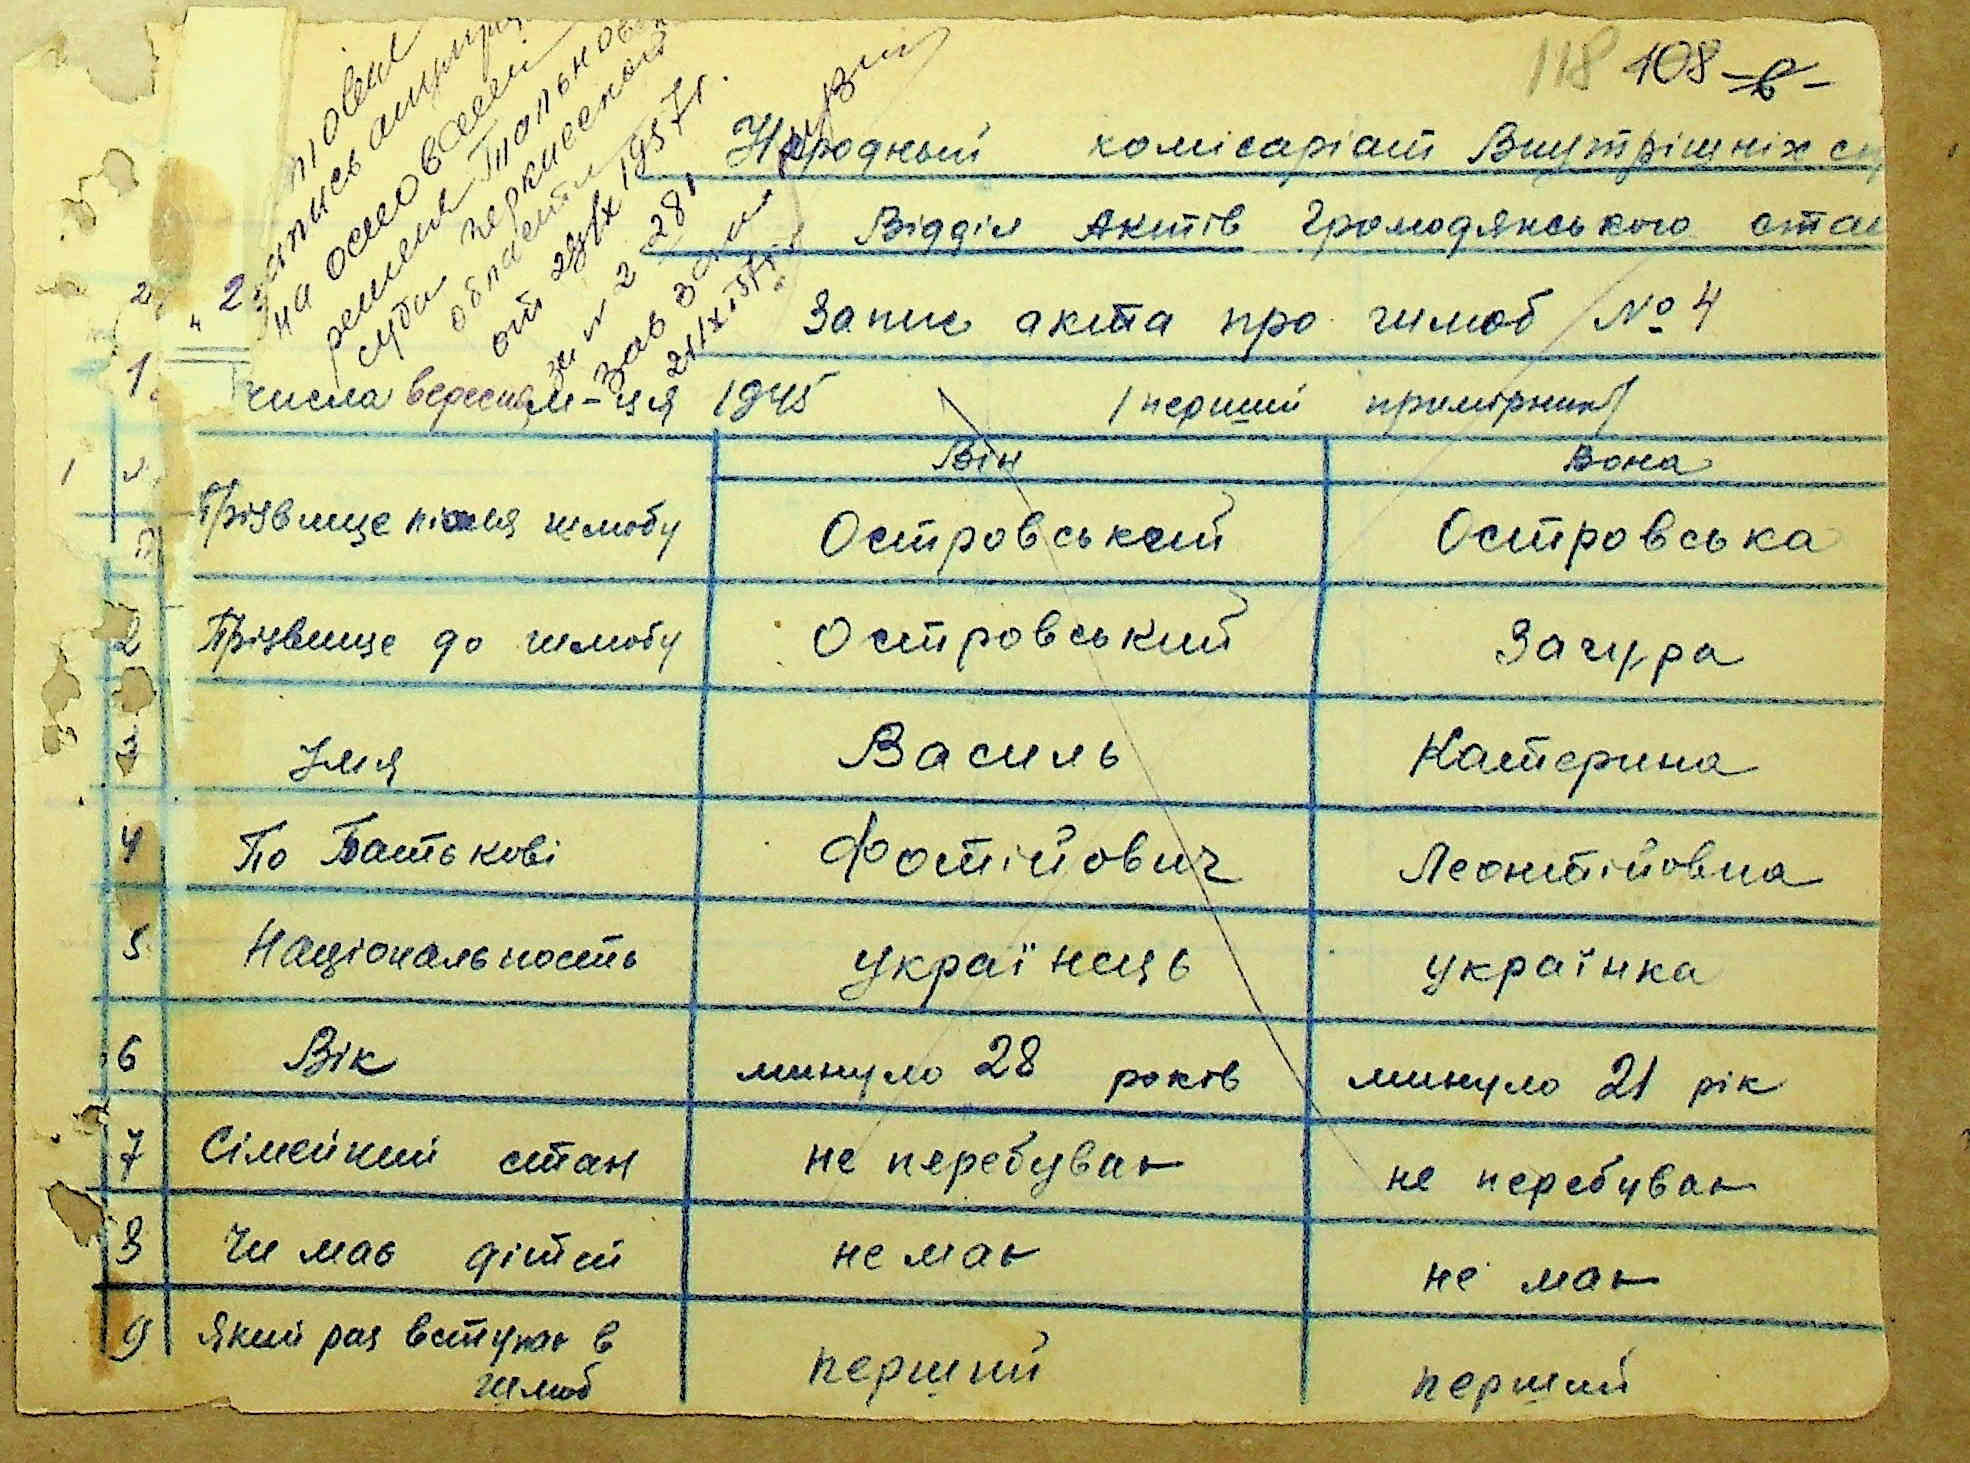 118 108
запись
на основаnии
решения Тальнов
суда Черкасской
области
от 1957 г.
за № 2
зав
Народный комісаріат Внутрішніх
Відділ Актів Громодянського ста
Запис акта про шлюб № 4
" 2
числа вересня м-ця 1945 /перший примірник/
Він Вона
1 Прізвище після шлюбу Островський Островська
2 Прізвище до шлюбу Островський Зачура
3 Імя Василь Катерина
4 По Батькові Фотійович Леонтійовна
5 Національность українець українка
6 Вік минуло 28 років минуло 21 рік
7 Сімейний стан не перебуває не перебуває
8 Чи має дітей не має не має
9 Який раз вступає в шлюб перший перший